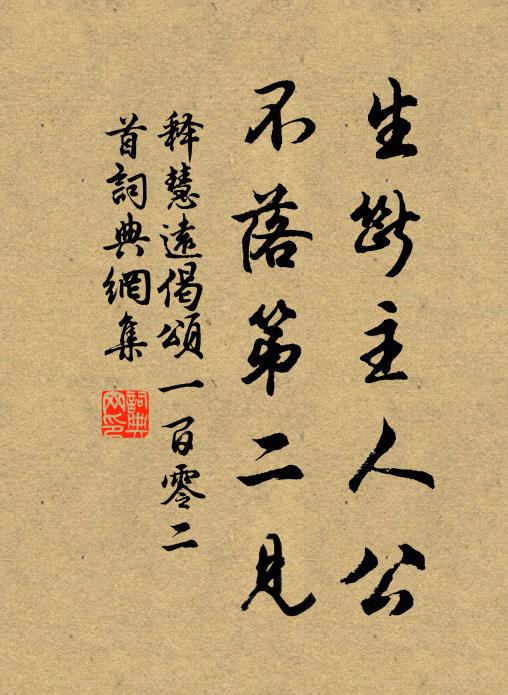 生斷主人公
不落第二見
釋慧遠偈頌一百零二
首詞典網集
詞典
网印